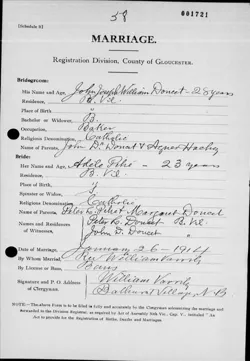 58
001721
Schedule XI
MARRIAGE.
Registration Division, County of GLOUCESTER.
Bridegroom:
His Name and Age, John Joseph William Doucet - 28 years
Residence, B. Vil.
Bachelor or Widower, B
Occupation, Baker
Religious Denomination, Catholic
Name of Parents, John D. Doucet & Agnes
Bride:
Her Name and Age, Adele - 23 years
Residence, B. Vil
Spinster or Widow,
Religious Denomination, Catholic
Name of Parents, Margaret Doucet
Names and Residences of Witnesses, Doucet B. Vil
John D. Doucet
Date of Marriage, January 26 - 1914
By Whom Married, Rev William Varrily
By License or Bans, Bans
Signature and P. O Address of Clergyman. William Varrily
Bathurst Village N-B
NOTE.—The above Form is to be filled in fully and accurately by the Clergyman solemnizing the marriage and
forwarded to the Division Registrar, as required by Act of Assembly 50th Vic., Cap. V., intituled "An
Act to provide for the Registration of Births, Deaths and Marriages.